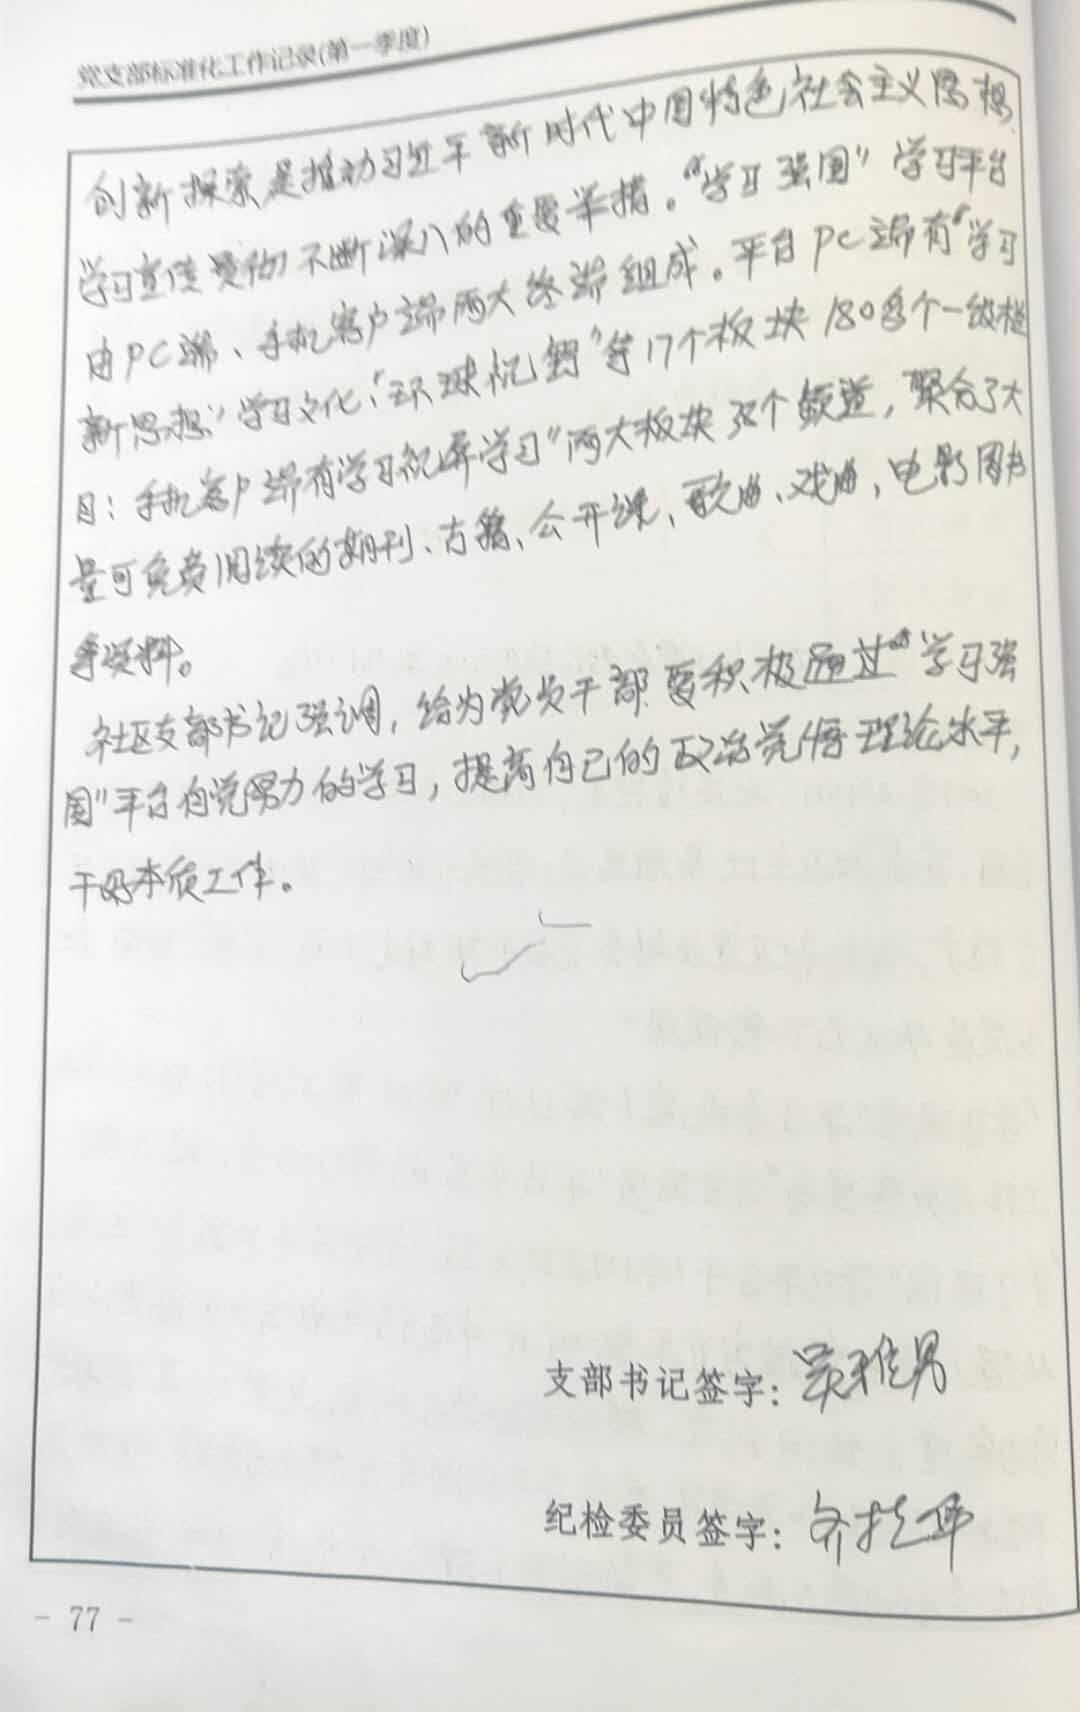 党支部标准化工作记录(第一季度)
创新探索是推动习近平新时代中国特色社会主义思想
学习宣传贯彻不断深入的重要举措。“学习强国”学习平台
由PC端、手机客户端两大终端组成。平台PC端有“学习
新思想”“学习文化”“环球视野”等17个板块180多个一级栏
目；手机客户端有学习视屏学习”两大板块38个频道，聚合了大
量可免费阅读的期刊、古籍、公开课、歌曲、戏曲，电影图书
等资料。
社区支部书记强调，给为党员干部要积极通过“学习强
国”平台自觉努力的学习，提高自己的政治觉悟理论水平，
干好本质工作。
支部书记签字：
纪检委员签字：
- 77 -